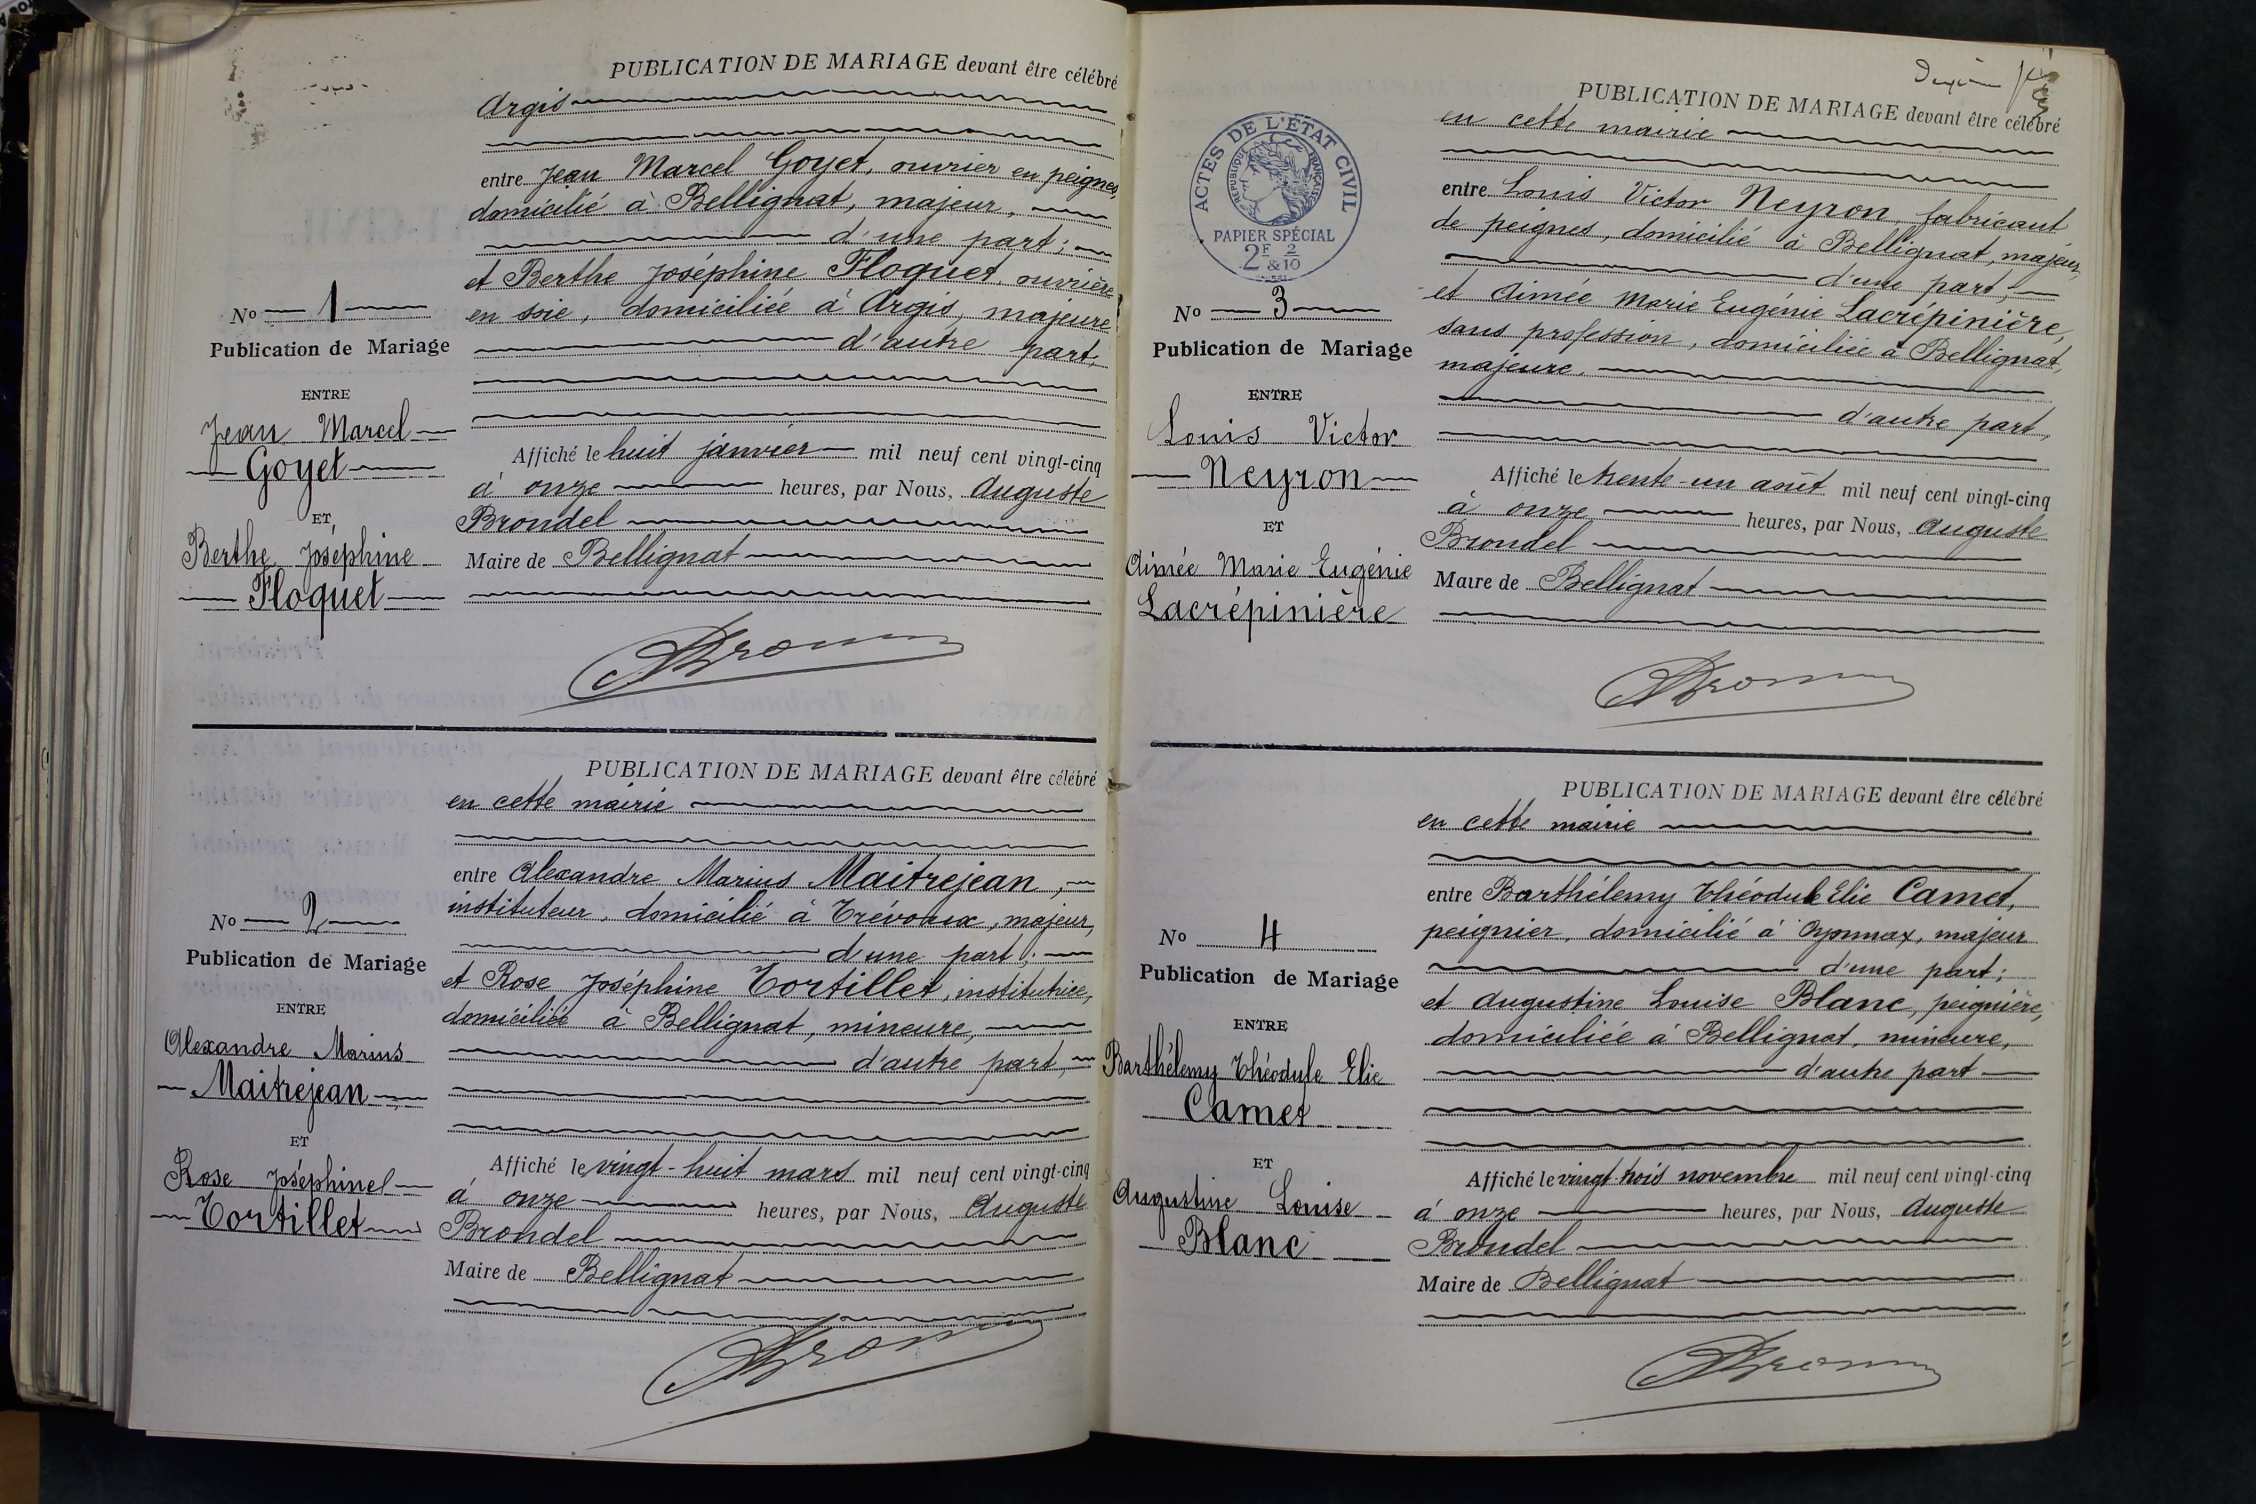 PUBLICATION DE MARIAGE devant être célébré
Argis
entre Jean Marcel Goyet, ouvrier en peignes,
domicilié à Bellignat, majeur,
d'une part;
et Berthe Joséphine Floquet, ouvrière
en soie, domiciliée à Argis, majeure
d'autre part,
No 1
Publication de Mariage
ENTRE
Jean Marcel
Goyet
ET
Berthe Joséphine
Floquet
Affiché le huit janvier mil neuf cent vingt-cinq
à onze heures, par Nous, Auguste
Brondel
Maire de Bellignat
PUBLICATION DE MARIAGE devant être célébré
en cette mairie
entre Alexandre Marius Maitrejean,
instituteur, domicilié à Trévoux, majeur,
d'une part;
et Rose Joséphine Tortillet, institutrice,
domiciliée à Bellignat, mineure,
d'autre part,
No 2
Publication de Mariage
ENTRE
Alexandre Marius
Maitrejean
ET
Rose Joséphine
Tortillet
Affiché le vingt-huit mars mil neuf cent vingt-cinq
à onze heures, par Nous, Auguste
Brondel
Maire de Bellignat
PUBLICATION DE MARIAGE devant être célébré
en cette mairie
ACTES DE L'ÉTAT CIVIL
RÉPUBLIQUE FRANÇAISE
PAPIER SPÉCIAL
2F & 2/10
entre Louis Victor Neyron, fabricant
de peignes, domicilié à Bellignat, majeur,
d'une part,
et Aimée Marie Eugénie Lacrépinière,
sans profession, domiciliée à Bellignat,
majeure,
d'autre part,
No 3
Publication de Mariage
ENTRE
Louis Victor
Neyron
ET
Aimée Marie Eugénie
Lacrépinière
Affiché le trente-un août mil neuf cent vingt-cinq
à onze heures, par Nous, Auguste
Brondel
Maire de Bellignat
PUBLICATION DE MARIAGE devant être célébré
en cette mairie
entre Barthélemy Théodule Elie Camet,
peignier, domicilié à Oyonnax, majeur
d'une part;
et Augustine Louise Blanc, peignière,
domiciliée à Bellignat, mineure,
d'autre part
No 4
Publication de Mariage
ENTRE
Barthélemy Théodule Elie
Camet
ET
Augustine Louise
Blanc
Affiché le vingt-trois novembre mil neuf cent vingt-cinq
à onze heures, par Nous, Auguste
Brondel
Maire de Bellignat